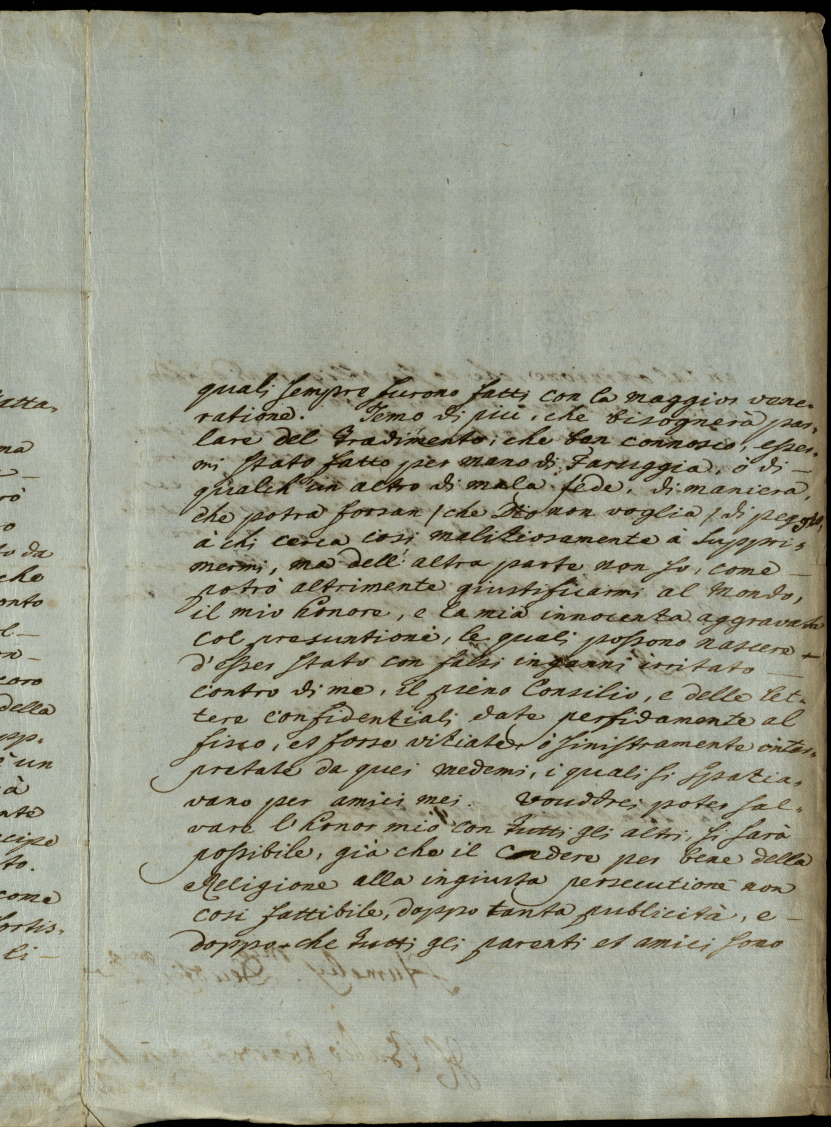 quali sempre furono fatti con la maggior vene-
ratione. Temo di più, che bisognerà par-
lare del tradimento, che ben connosco, esser-
mi stato fatto per mano di Faruggia, ò di
qualch'un altro di mala fede, di maniera,
che potrà forsan /che Dio non voglia/ di peggio,
à chi cerca cosi malitiosamente à suppri-
mermi, ma dell'altra parte non so, come
potrò altrimente giustificarmi al Mondo,
il mio honore, e la mia innocenta aggravata
col presuntione, le quali possono nascere
d'esser stato con falsi inganni irritato
contro di me, il pieno Consilio, e delle let-
tere confidentiali date perfidamente al
fisco, et forse vitiate, ò sinistramente inter-
pretate da quei medemi, i quali si spatia-
vano per amici mei. Vouddrei poter sal-
vare l'honor mio con tutti gli altri, si sarà
possibile, già che il cedere per bene della
Religione alla ingiusta persecutione non
cosi fattibile, doppo tanta publicità, e
doppo che tutti gli parenti et amici sono
atta-
ma
rò
to da
che
onto
el-
on-
coro
della
opp-
è un
à
ate
ncipe
to.
come
fortis-
li-